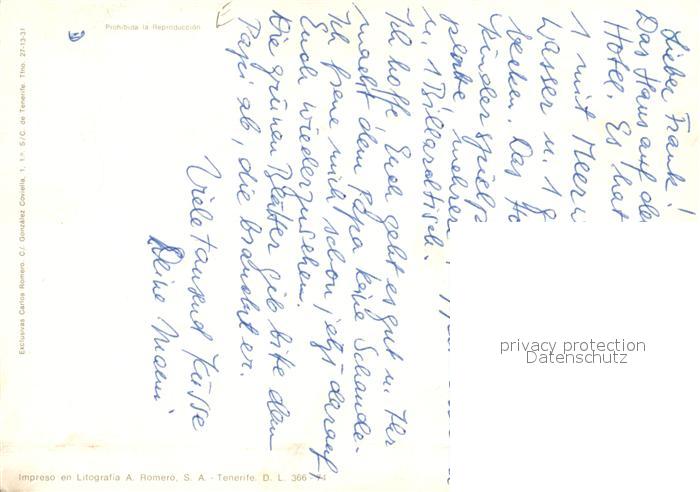 Lieber Frank!
Das Haus auf de
Hotel. Es hat
1 mit Meer
Wasser u. 1
becken. Das H
Kinderspielp
platte, mehrere
u. 1 Billardtisch.
Ich hoffe Euch geht es gut u. Ihr
macht dem Papa keine Schande.
Ich freue mich schon jetzt darauf,
Euch wiederzusehen.
Die grünen Blätter gib bitte dem
Papi ab, die braucht er.
Viele tausend Küsse
Deine Mami
Prohibida la Reproducción
Exclusivas Carlos Romero. C/ González Coviella, 1, 1.º S/C. de Tenerife. Tfno. 27-13-31
Impreso en Litografía A. Romero, S. A. - Tenerife. D. L. 366 - 74
privacy protection
Datenschutz